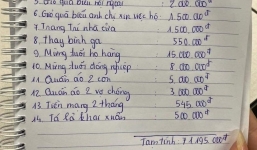 5. Giỏ quà biếu nội ngoại : 2 000 000đ
6. Giỏ quà biếu anh chị xin việc hộ : 1 500 000đ
7. Trang trí nhà cửa : 1 500 000đ
8. Thay bình ga : 550 000đ
9. Mừng tuổi họ hàng : 15 000 000đ
10. Mừng tuổi đồng nghiệp : 8 000 000đ
11. Quần áo 2 con : 5 000 000đ
12. Quần áo 2 vợ chồng : 3 000 000đ
13. Tiền mạng 2 tháng : 545 000đ
14. Tả lễ khai xuân : 500 000đ
Tạm tính : 71 195 000đ